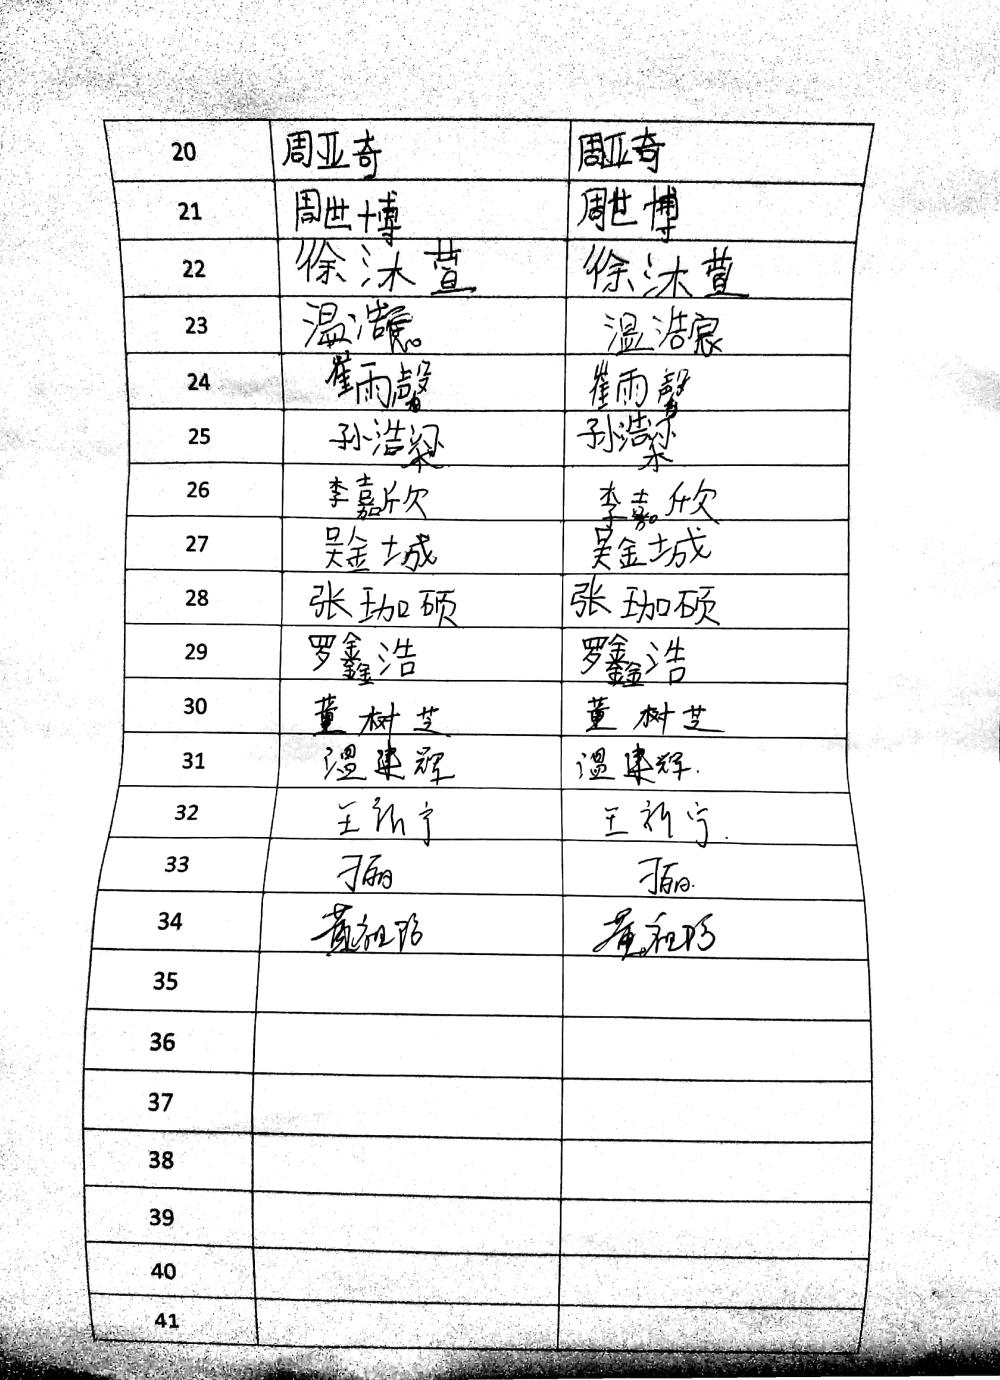 20 周亚奇 周亚奇
21 周世博 周世博
22 徐沐萱 徐沐萱
23 温浩宸 温浩宸
24 崔雨馨 崔雨馨
25 孙浩梁 孙浩梁
26 李嘉欣 李嘉欣
27 吴金城 吴金城
28 张珈硕 张珈硕
29 罗鑫浩 罗鑫浩
30 董树芝 董树芝
31 温建辉 温建辉.
32 王新宁 王新宁.
33
34 黄祖
35
36
37
38
39
40
41